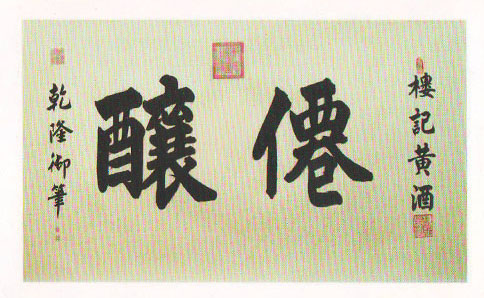 樓記黄酒
僊釀
乾隆御筆